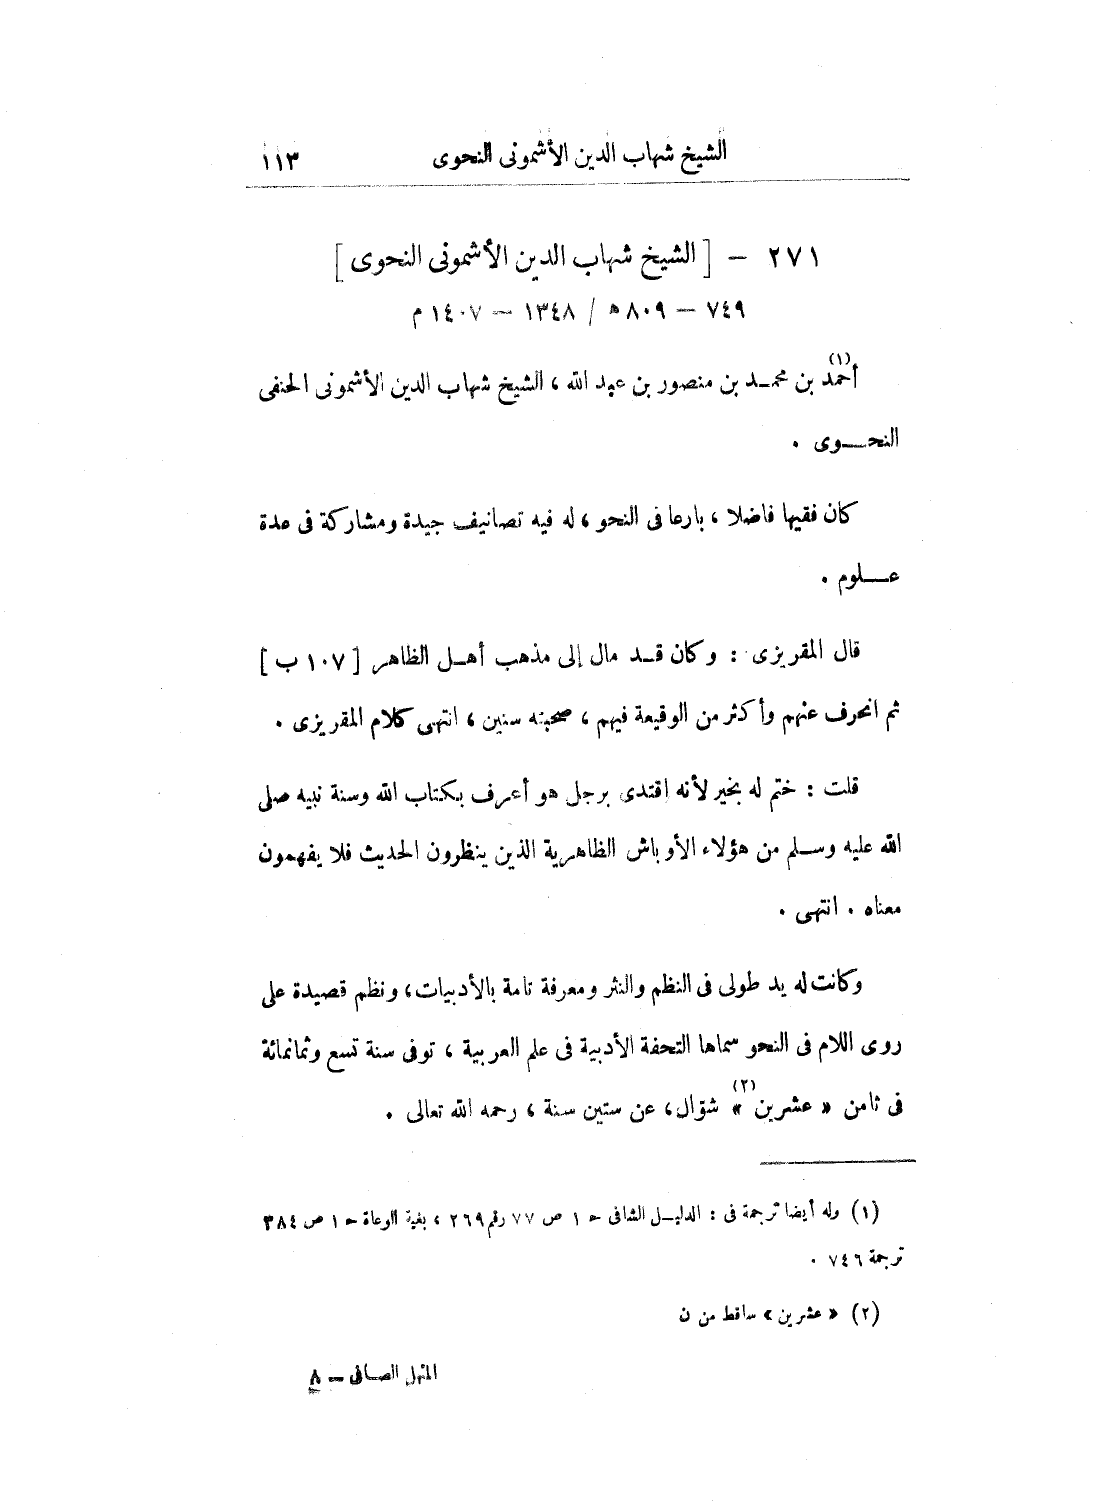 الشيخ شهاب الدين الأشمونى النحوى ١١٣
٢٧١ – [ الشيخ شهاب الدين الأشمونى النحوى ]
٧٤٩ – ٨٠٩ ه / ١٣٤٨ – ١٤٠٧ م
أحمد (١) بن محمـد بن منصور بن عبد الله ، الشيخ شهاب الدين الأشمونى الحنفى
النحـــوى .
كان فقيها فاضلا ، بارعا فى النحو ، له فيه تصانيف جيدة ومشاركة فى عدة
عـــلوم .
قال المقريزى : وكان قـد مال إلى مذهب أهـل الظاهر [ ١٠٧ ب ]
ثم انحرف عنهم وأكثر من الوقيعة فيهم ، صحبته سنين ، انتهى كلام المقريزى .
قلت : ختم له بخير لأنه اقتدى برجل هو أعرف بكتاب الله وسنة نبيه صلى
الله عليه وسـلم من هؤلاء الأوباش الظاهرية الذين ينظرون الحديث فلا يفهمون
معناه . انتهى .
وكانت له يد طولى فى النظم والنثر ومعرفة تامة بالأدبيات، ونظم قصيدة على
روى اللام فى النحو سماها التحفة الأدبية فى علم العربية ، توفى سنة تسع وثمانمائة
فى ثامن « عشرين (٢) » شوّال، عن ستين سنة ، رحمه الله تعالى .
(١) وله أيضا ترجمة فى : الدليـل الشافى ح ١ ص ٧٧ رقم ٢٦٩ ، بغية الوعاة ح ١ ص ٣٨٤
ترجمة ٧٤٦ .
(٢) « عشرين » ساقط من ن
المنهل الصـافى – ٨